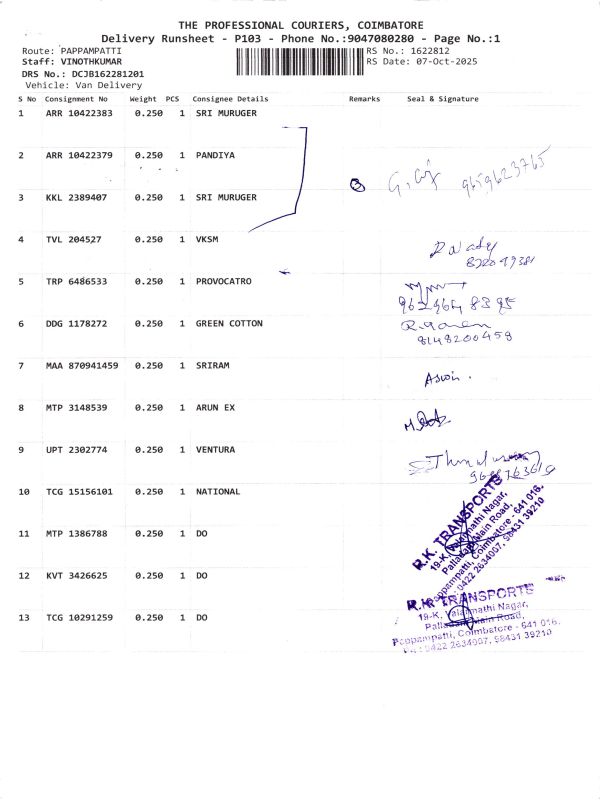 THE PROFESSIONAL COURIERS, COIMBATORE
Delivery Runsheet - P103 - Phone No.:9047080280 - Page No.:1
Route: PAPPAMPATTI RS No.: 1622812
Staff: VINOTHKUMAR RS Date: 07-Oct-2025
DRS No.: DCJB162281201
Vehicle: Van Delivery
S No Consignment No Weight PCS Consignee Details Remarks Seal & Signature
1 ARR 10422383 0.250 1 SRI MURUGER
2 ARR 10422379 0.250 1 PANDIYA
3 9659623765
3 KKL 2389407 0.250 1 SRI MURUGER
4 TVL 204527 0.250 1 VKSM
5 TRP 6486533 0.250 1 PROVOCATRO
6 DDG 1178272 0.250 1 GREEN COTTON
8148200459
7 MAA 870941459 0.250 1 SRIRAM
Aswin.
8 MTP 3148539 0.250 1 ARUN EX
9 UPT 2302774 0.250 1 VENTURA
10 TCG 15156101 0.250 1 NATIONAL
11 MTP 1386788 0.250 1 DO
12 KVT 3426625 0.250 1 DO
13 TCG 10291259 0.250 1 DO
R.K. TRANSPORTS
19-K, Valarmathi Nagar,
Palladam Main Road,
Pappampatti, Coimbatore - 641 016.
0422 2634007, 98431 39210
R.K. TRANSPORTS
19-K, Valarmathi Nagar,
Palladam Main Road,
Pappampatti, Coimbatore - 641 016.
0422 2634007, 98431 39210